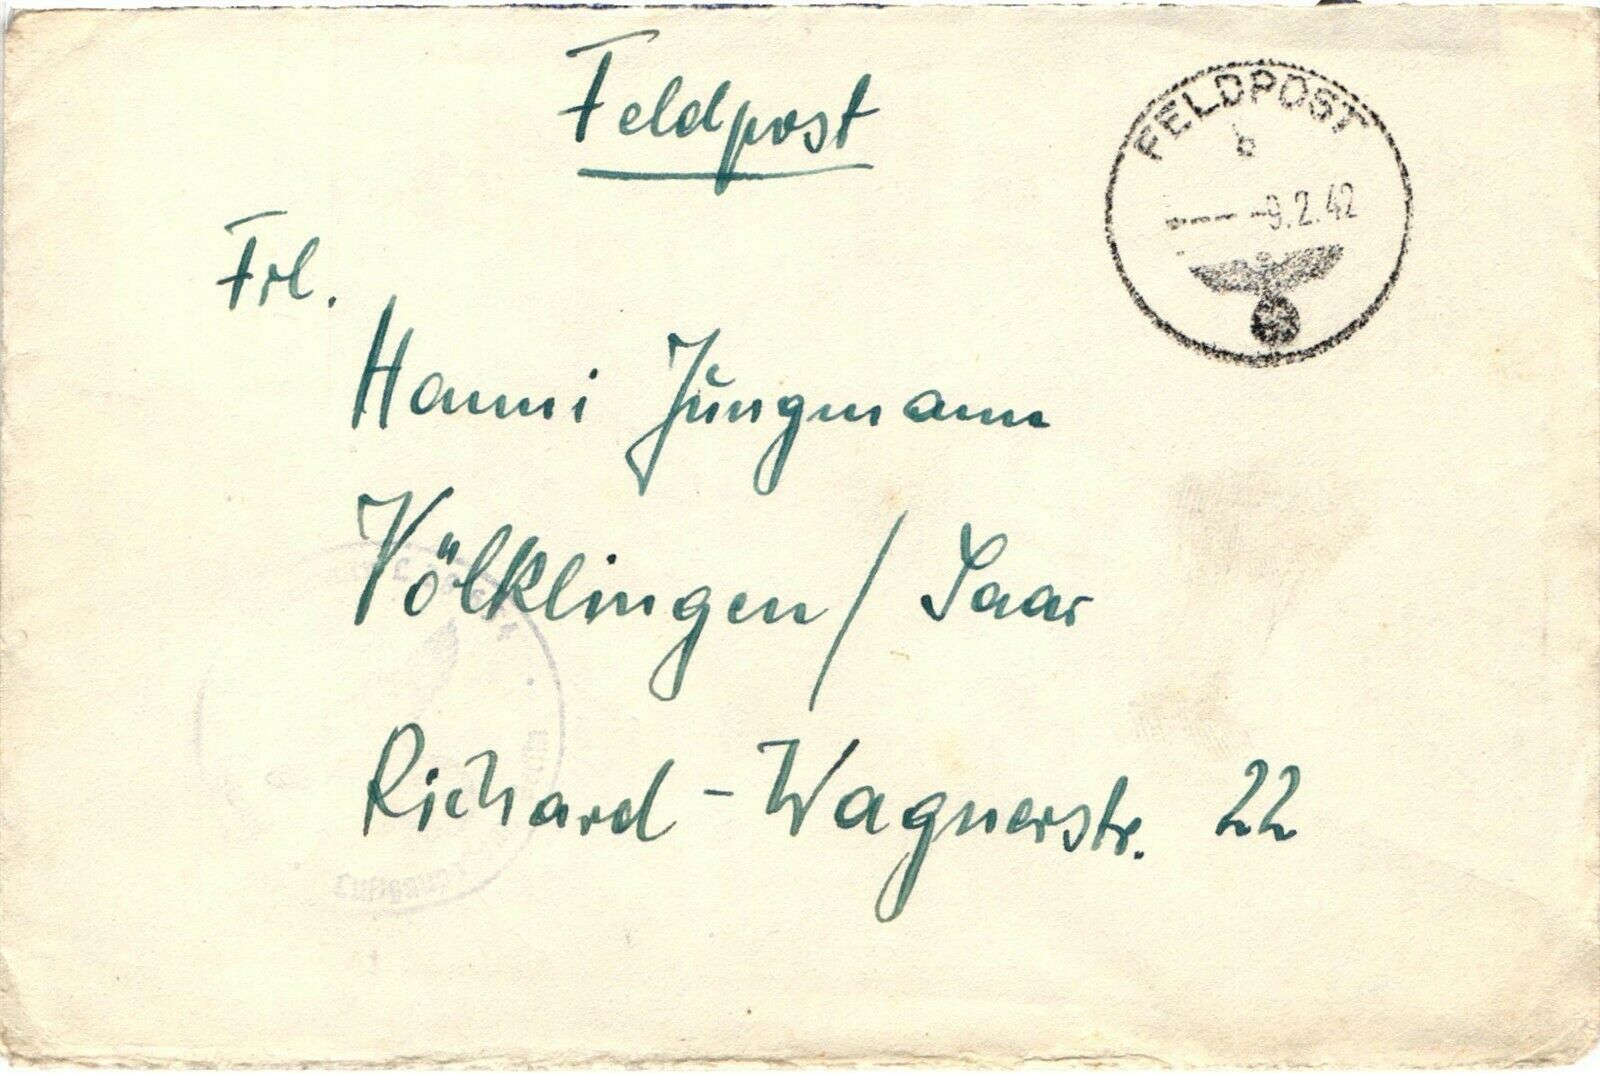 Feldpost
FELDPOST
b
-9.2.42
Frl.
Hanni Jüngmann
Völklingen / Saar
Richard-Wagnerstr. 22